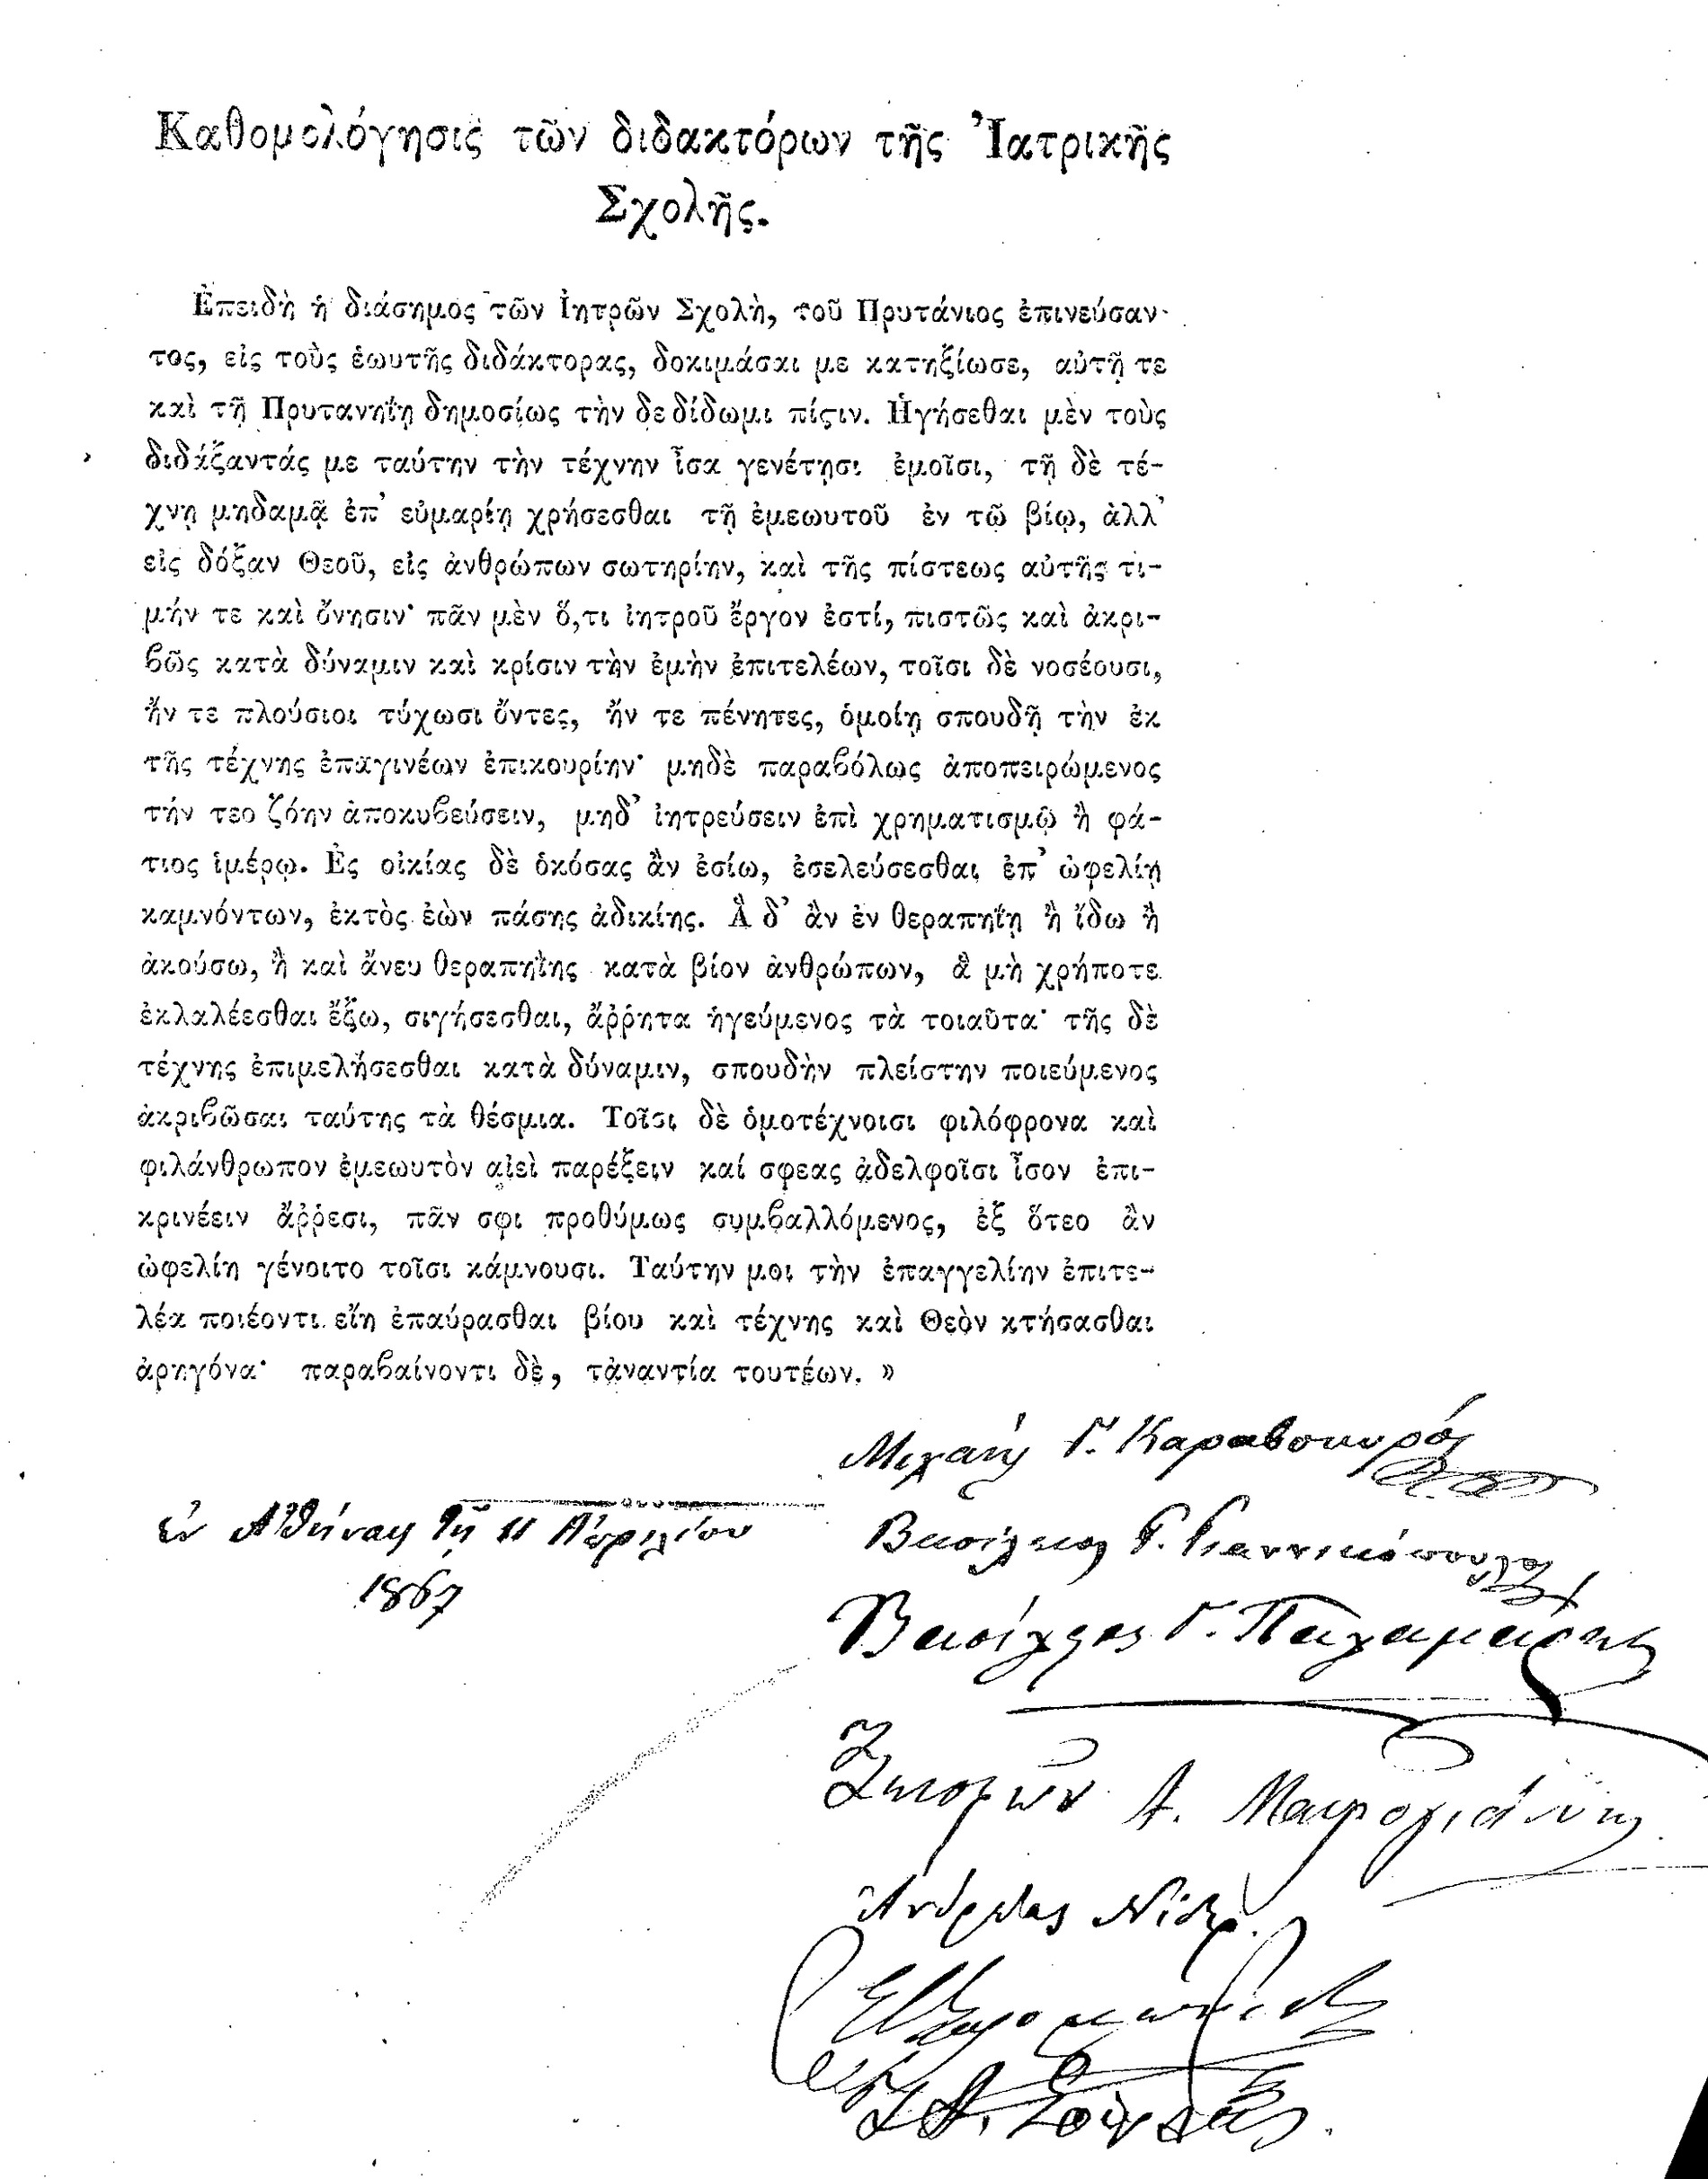 Καθομολόγησις τῶν διδακτόρων τῆς Ἰατρικῆς
Σχολῆς.
Ἐπειδὴ ἡ διάσημος τῶν Ἰητρῶν Σχολὴ, τοῦ Πρυτάνιος ἐπινεύσαν-
τος, εἰς τοὺς ἑωυτῆς διδάκτορας, δοκιμάσαι με κατηξίωσε, αὐτῇ τε
καὶ τῇ Πρυτανηΐῃ δημοσίως τὴν δε δίδωμι πίςιν. Ἡγήσεθαι μὲν τοὺς
διδάξαντάς με ταύτην τὴν τέχνην ἶσα γενέτῃσι ἐμοῖσι, τῇ δὲ τέ-
χνῃ μηδαμᾷ ἐπ' εὐμαρίῃ χρήσεσθαι τῇ ἐμεωυτοῦ ἐν τῷ βίῳ, ἀλλ'
εἰς δόξαν Θεοῦ, εἰς ἀνθρώπων σωτηρίην, καὶ τῆς πίστεως αὐτῆς τι-
μήν τε καὶ ὄνησιν· πᾶν μὲν ὅ,τι ἰητροῦ ἔργον ἐστί, πιστῶς καὶ ἀκρι-
βῶς κατὰ δύναμιν καὶ κρίσιν τὴν ἐμὴν ἐπιτελέων, τοῖσι δὲ νοσέουσι,
ἤν τε πλούσιοι τύχωσι ὄντες, ἤν τε πένητες, ὁμοίῃ σπουδῇ τὴν ἐκ
τῆς τέχνης ἐπαγινέων ἐπικουρίην· μηδὲ παραβόλως ἀποπειρώμενος
τήν τεο ζόην ἀποκυβεύσειν, μηδ' ἰητρεύσειν ἐπὶ χρηματισμῷ ἢ φά-
τιος ἱμέρῳ. Ἐς οἰκίας δὲ ὁκόσας ἂν ἐσίω, ἐσελεύσεσθαι ἐπ' ὠφελίῃ
καμνόντων, ἐκτὸς ἐὼν πάσης ἀδικίης. Ἃ δ' ἂν ἐν θεραπηΐῃ ἢ ἴδω ἢ
ἀκούσω, ἢ καὶ ἄνευ θεραπηΐης κατὰ βίον ἀνθρώπων, ἃ μὴ χρήποτε
ἐκλαλέεσθαι ἔξω, σιγήσεσθαι, ἄῤῥητα ἡγεύμενος τὰ τοιαῦτα· τῆς δὲ
τέχνης ἐπιμελήσεσθαι κατὰ δύναμιν, σπουδὴν πλείστην ποιεύμενος
ἀκριβῶσαι ταύτης τὰ θέσμια. Τοῖσι δὲ ὁμοτέχνοισι φιλόφρονα καὶ
φιλάνθρωπον ἐμεωυτὸν αἰεὶ παρέξειν καί σφεας ἀδελφοῖσι ἶσον ἐπι-
κρινέειν ἄῤῥεσι, πᾶν σφι προθύμως συμβαλλόμενος, ἐξ ὅτεο ἂν
ὠφελίη γένοιτο τοῖσι κάμνουσι. Ταύτην μοι τὴν ἐπαγγελίην ἐπιτε-
λέα ποιέοντι εἴη ἐπαύρασθαι βίου καὶ τέχνης καὶ Θεὸν κτήσασθαι
ἀρηγόνα· παραβαίνοντι δὲ, τἀναντία τουτέων. »
Μιχαὴλ Γ. Καραβοκυρός
ἐν Ἀθήναις τῇ 11 Ἀπριλίου
1867
Βασίλειος Γ. Γιαννικόπουλος
Βασίλειος Γ. Παλαμάρης
Ζησιμών Α. Μαυρογιάννης
Ἀνδρέας